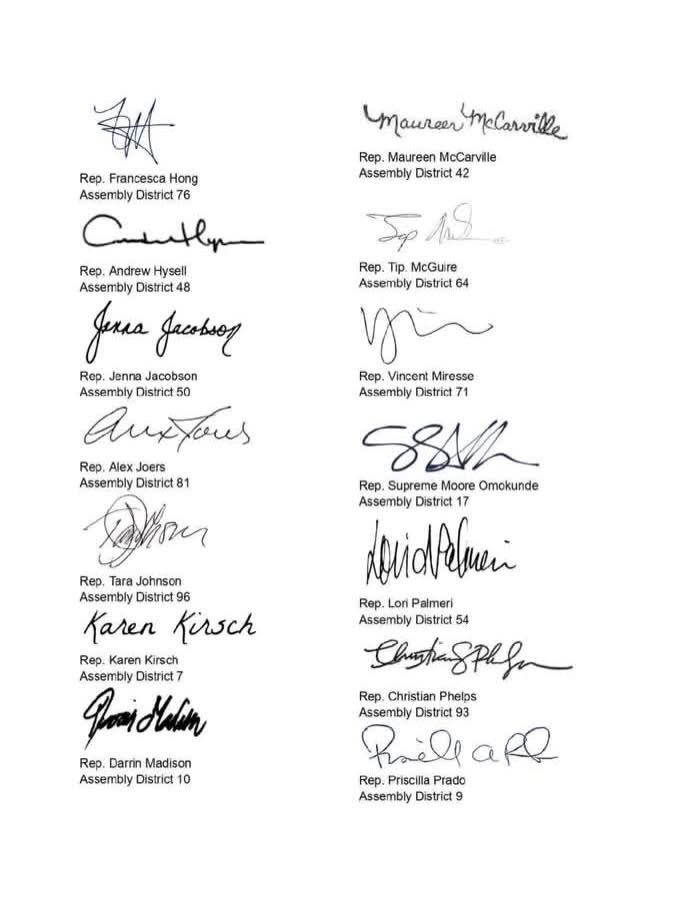 Rep. Francesca Hong
Assembly District 76
Rep. Andrew Hysell
Assembly District 48
Jenna Jacobson
Rep. Jenna Jacobson
Assembly District 50
Rep. Alex Joers
Assembly District 81
Rep. Tara Johnson
Assembly District 96
Karen Kirsch
Rep. Karen Kirsch
Assembly District 7
Rep. Darrin Madison
Assembly District 10
Maureen McCarville
Rep. Maureen McCarville
Assembly District 42
Rep. Tip. McGuire
Assembly District 64
Rep. Vincent Miresse
Assembly District 71
Rep. Supreme Moore Omokunde
Assembly District 17
Rep. Lori Palmeri
Assembly District 54
Rep. Christian Phelps
Assembly District 93
Rep. Priscilla Prado
Assembly District 9